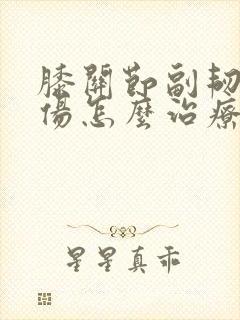 膝關節副韌
傷怎麼治療
星星真乖